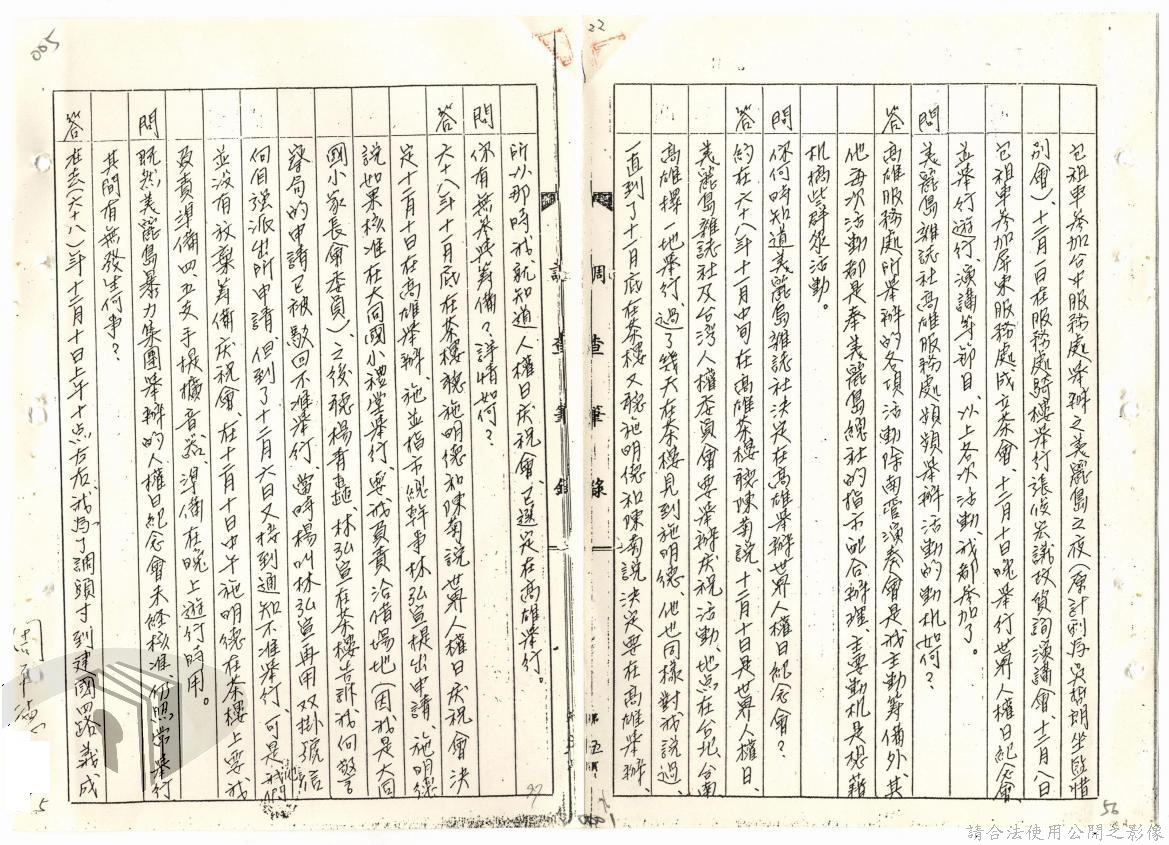 22
包租車參加台中服務處舉辦之美麗島之夜(原計劃為吳哲朗坐監惜
別會)、十二月一日在服務處騎樓舉行張俊宏議政質詢演講會、十二月八日
包租車參加屏東服務處成立茶會、十二月十日晚舉行世界人權日紀念會、
並舉行遊行、演講等節目、以上各次活動、我都參加了。
問 美麗島雜誌社高雄服務處頻頻舉辦活動的動机如何?
答 高雄服務處所舉辦的各項活動除南管演奏會是我主動籌備外、其
他每次活動都是奉美麗島總社的指示配合辦理主要動机是想藉
机搞些群眾活動。
問 你何時知道美麗島雜誌社決定在高雄舉辦世界人權日紀念會?
答 約在六十八年十一月中旬在高雄茶樓聽陳菊說、十二月十日是世界人權日、
美麗島雜誌社及台灣人權委員會要舉辦庆祝活動、地点在台北、台南
高雄擇一地舉行、過了幾天在茶樓見到施明德、他也同樣對我說過、
一直到了十一月底在茶樓又聽施明德和陳菊說決定要在高雄舉辦、
56
調查筆錄
第五頁
005
所以那時我就知道人權日庆祝會、已選定在高雄舉行。
問 你有無參與籌備?詳情如何?
答 六十八年十一月底在茶樓聽施明德和陳菊說世界人權日庆祝會決
定十二月十日在高雄舉辦、施並指示總幹事林弘宣提出申請、施明德
說如果核准在大同國小禮堂舉行、要我負責洽借場地(因我是大同
國小家長會委員)、之後聽楊青矗、林弘宣在茶樓告訴我向警
察局的申請已被駁回不准舉行、當時楊叫林弘宣再用双掛號信
向自强派出所申請、但到了十二月六日又接到通知不准舉行、可是我們
並沒有放棄籌備庆祝會、在十二月十日中午施明德在茶樓上要我
負責準備四、五支手提擴音器、準備在晚上遊行時用。
問 既然美麗島暴力集團舉辦的人權日紀念會未經核准、仍照常舉行
其間有無發生何事?
答 在去(六十八)年十二月十日上午十点左右、我為了調頭寸到建國四路義成
調查筆錄
周平德
5
請合法使用公開之影像